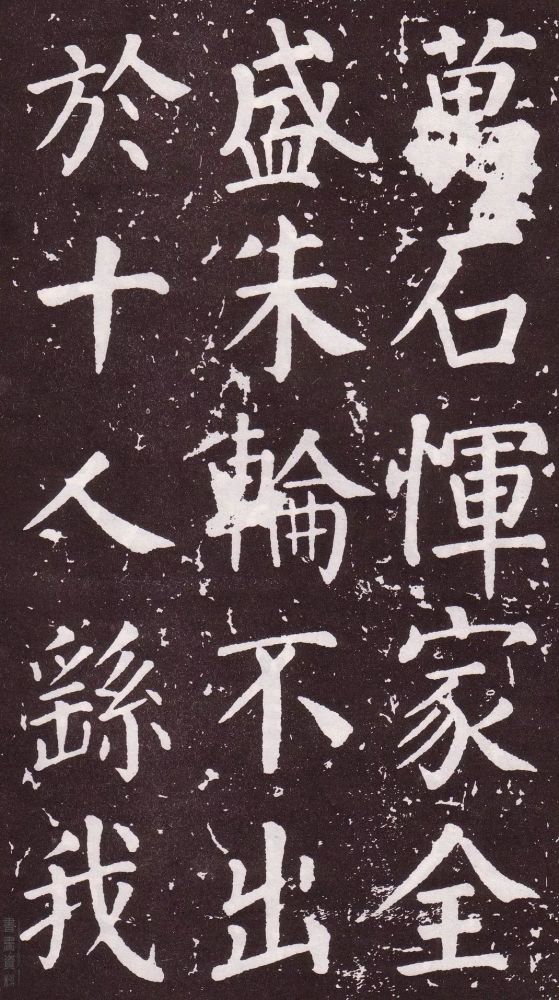 萬石惲家全
盛朱輪不出
於十人繇我
書畫資料